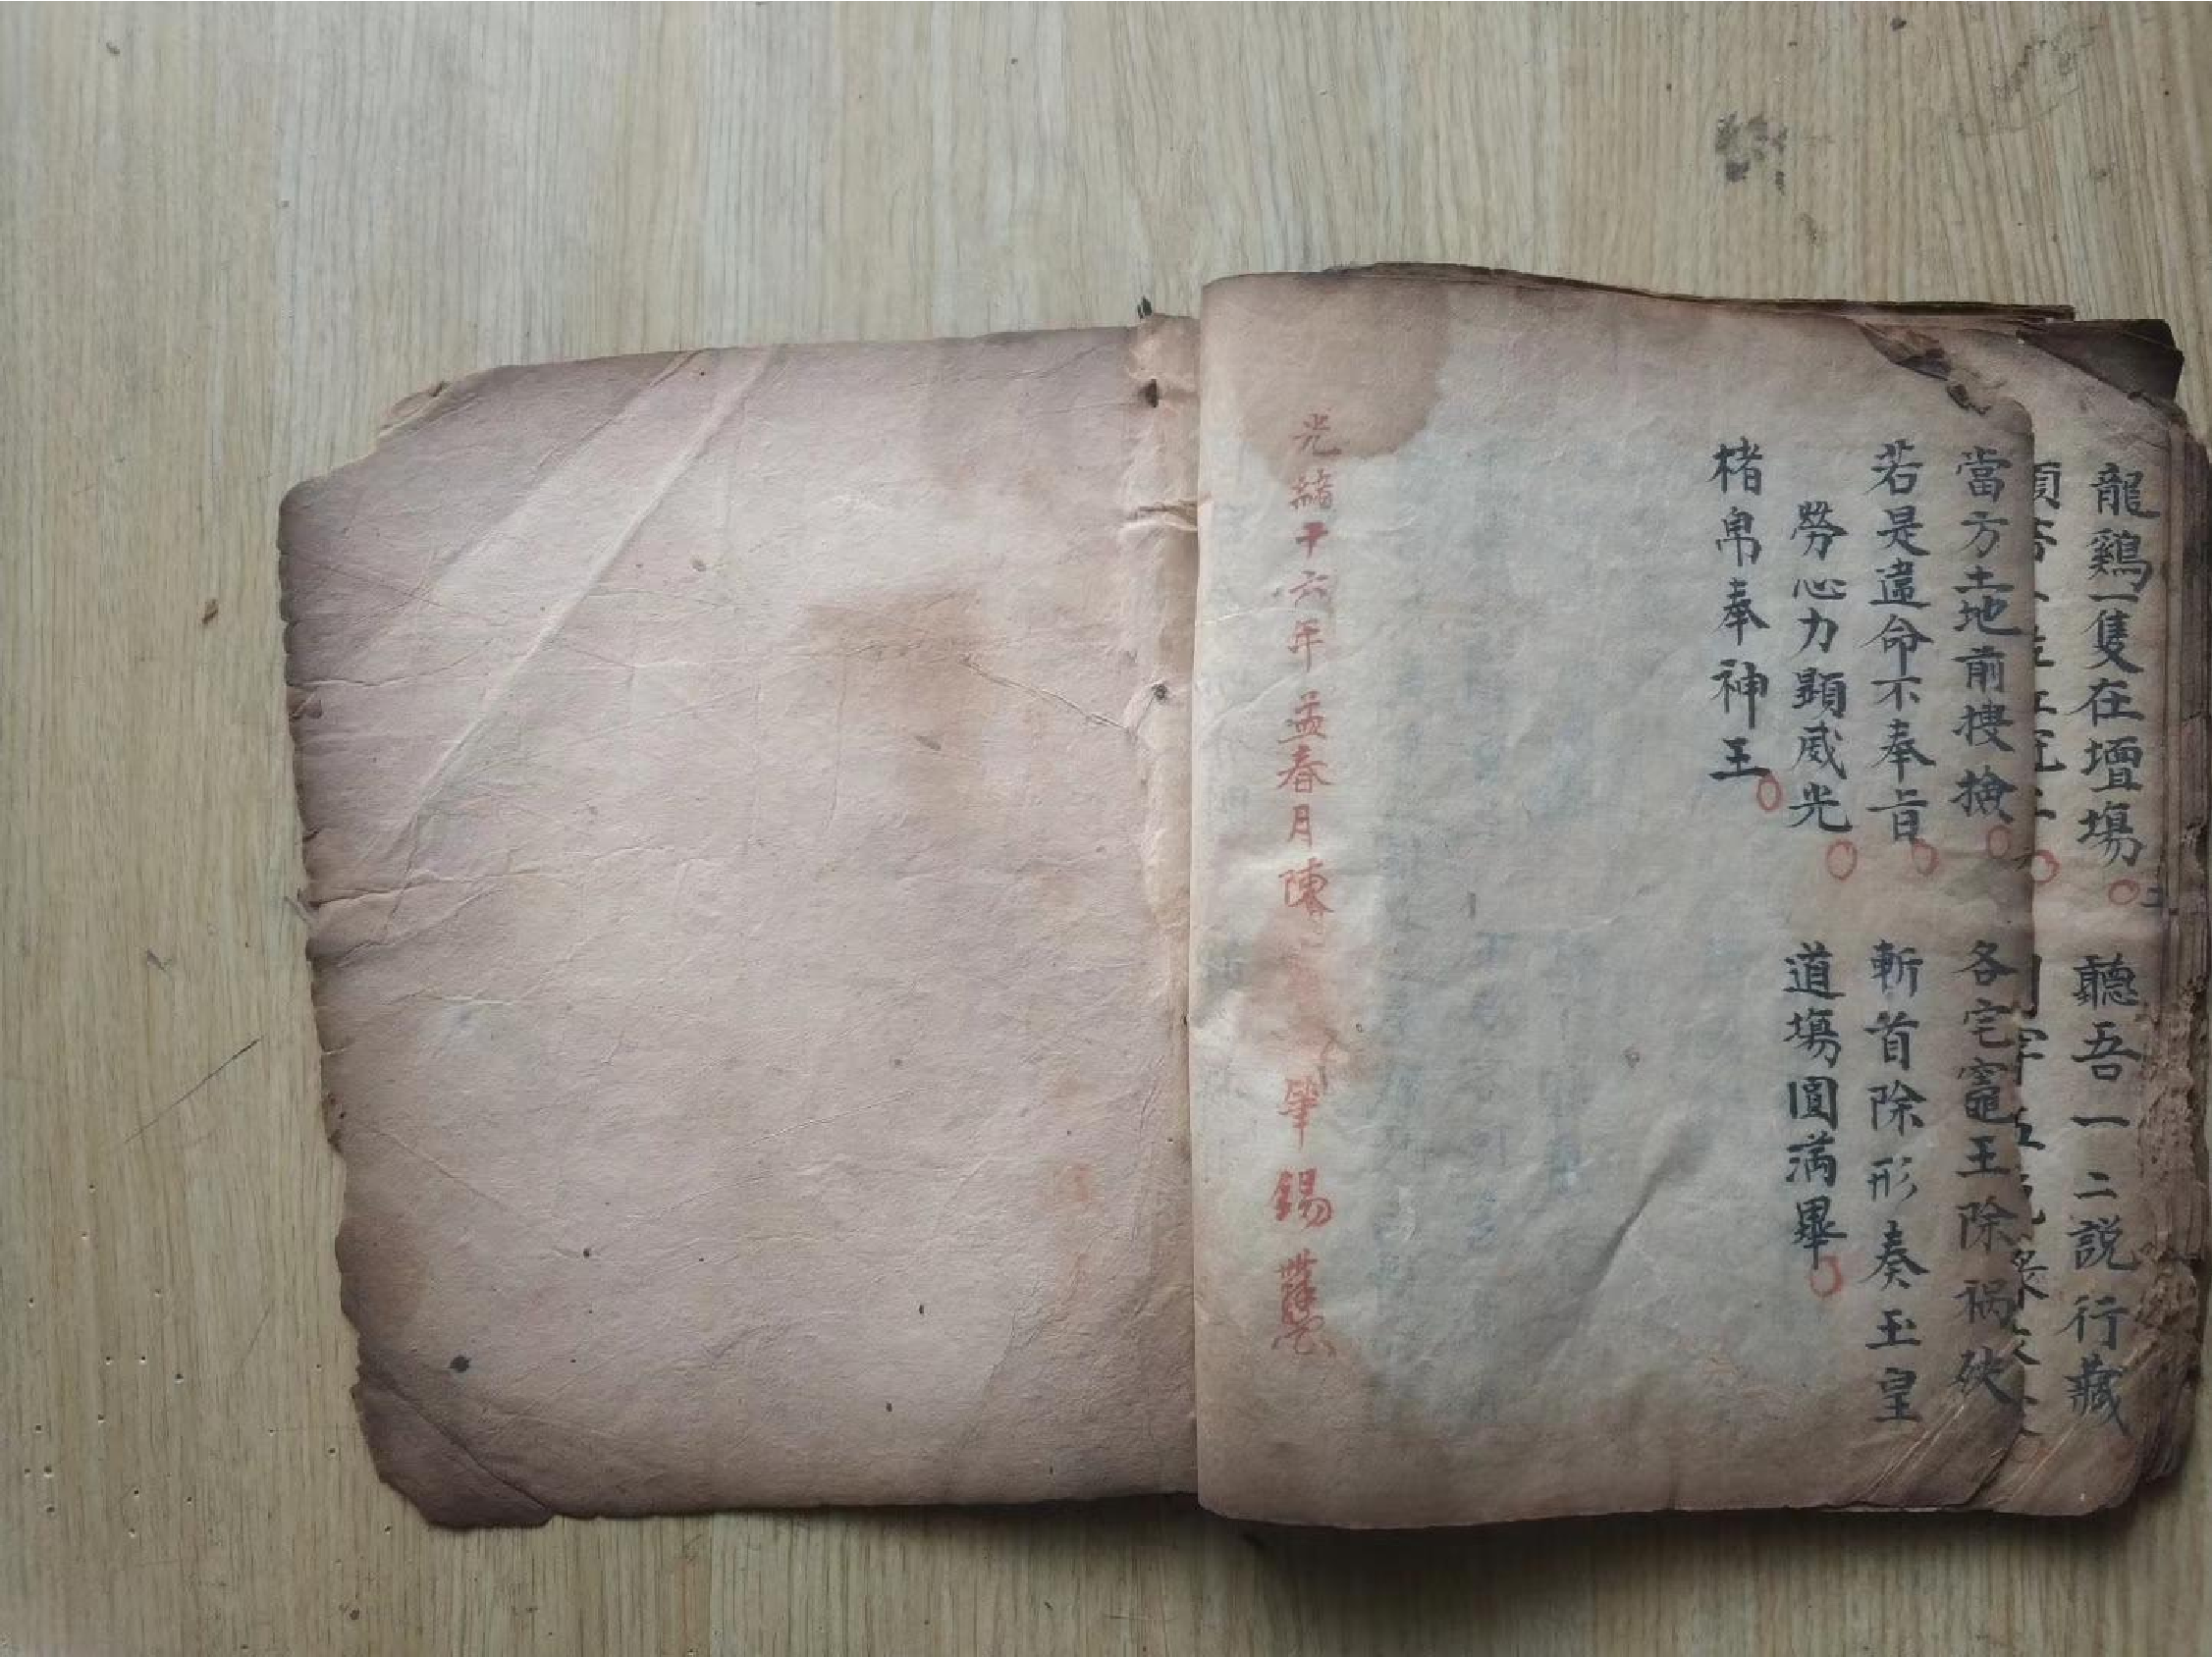 龍鷄一隻在壇塲 聽吾一二説行藏
當方土地前搜撿 各宅竈王除禍殃
若是違命不奉旨 斬首除形奏玉皇
勞心力顯威光 道塲圓滿畢
楮帛奉神王
光緒十六年孟春月陳 筆錫